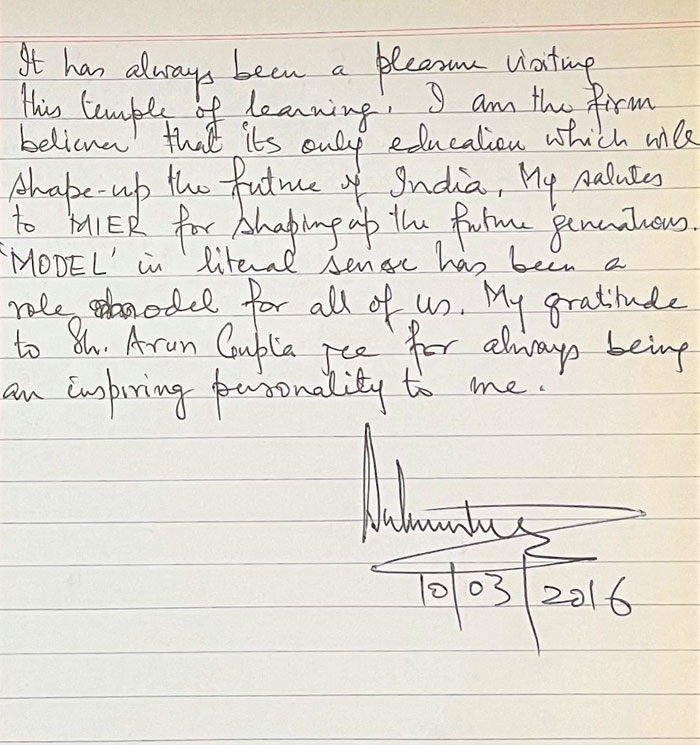 It has always been a pleasure visiting
this temple of learning. I am the firm
believer that its only education which will
shape-up the future of India. My salutes
to MIER for shaping up the future generations.
'MODEL' in literal sense has been a
role model for all of us. My gratitude
to Sh. Arun Gupta Jee for always being
an inspiring personality to me.
10/03/2016